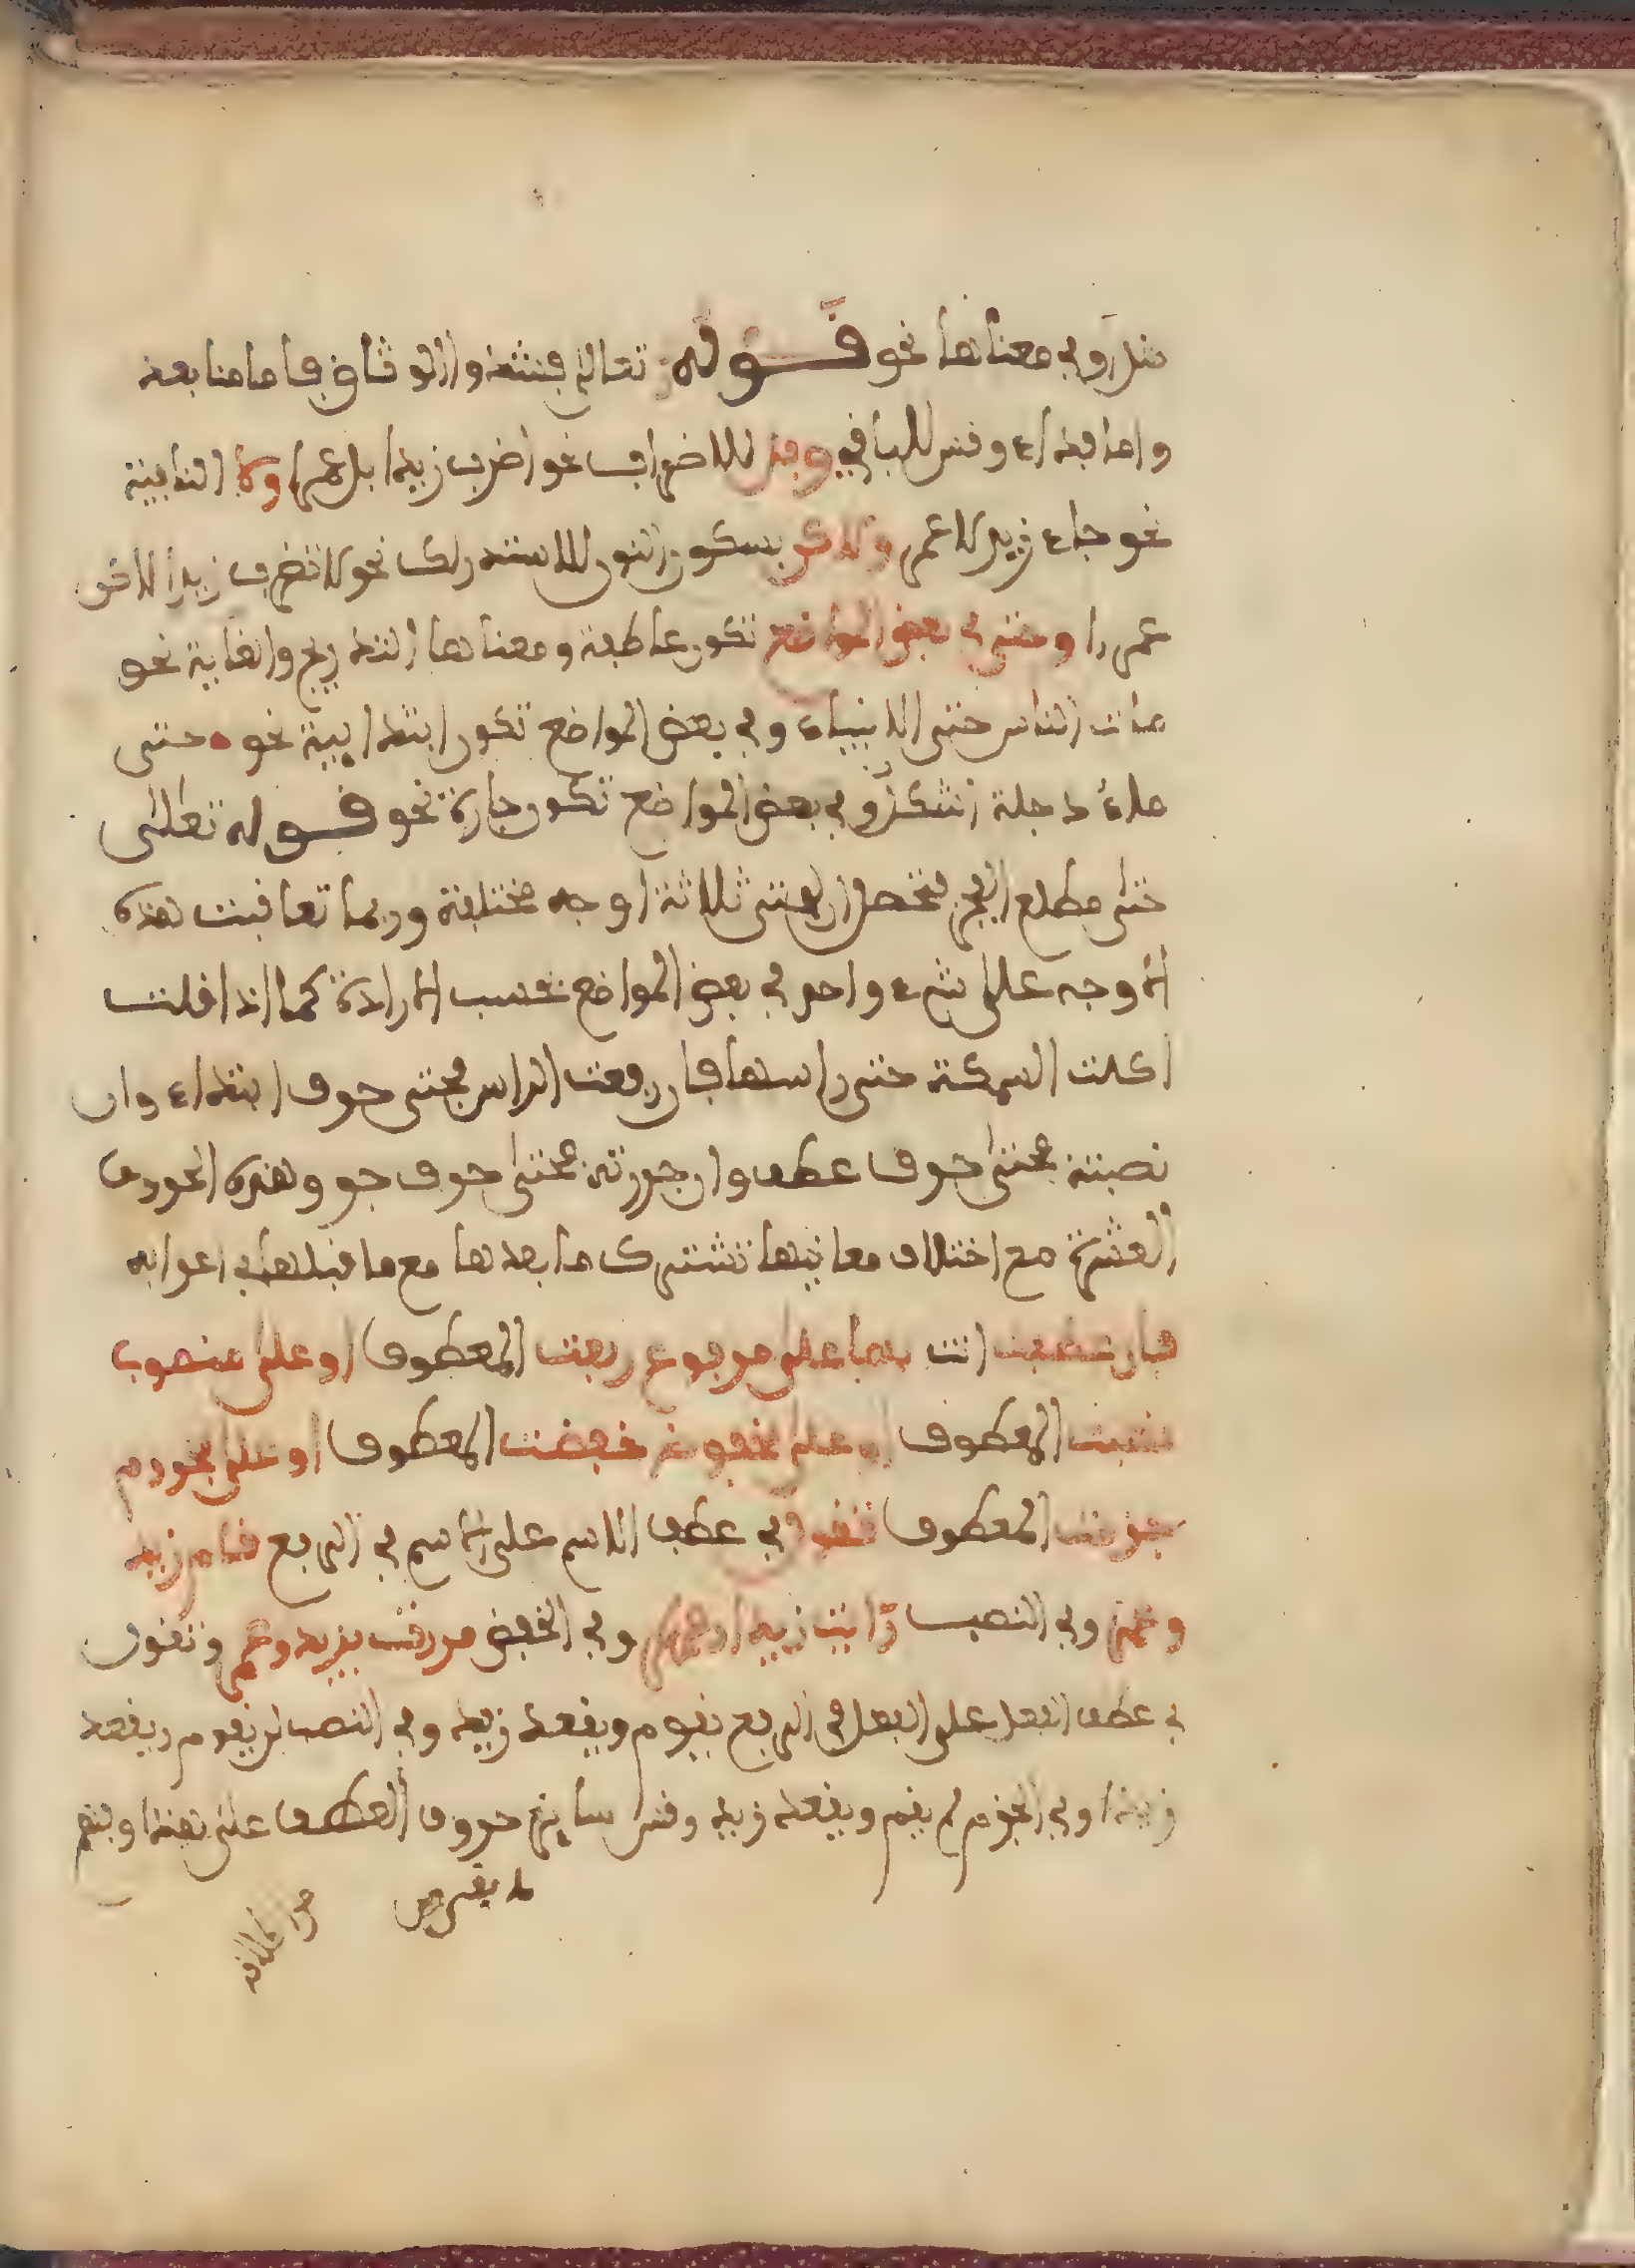 مثل أو في معناها نحو قوله تعالى فشدوا الوثاق فإما منا بعد
وإما فداء وقس الباقي وبل للإضراب نحو اضرب زيدا بل عمرا ولا النافية
نحو جاء زيد لا عمر ولاكن بسكون النون للاستدراك نحو لا تضرب زيدا لاكن
عمرا وحتى في بعض المواضع تكون عاطفة ومعناها التدريج والغاية نحو
مات الناس حتى الانبياء وفي بعض المواضع تكون ابتدايية نحو حتى
ماء دجلة اشكل وفي بعض المواضع تكون جارة نحو قوله تعالى
حتى مطلع الفجر فتحصل ان لحتى ثلاثة اوجه مختلفة وربما تعاقبت هذه
الاوجه على شيء واحد في بعض المواضع بحسب الارادة كما اذا قلت
اكلت السمكة حتى راسها فان رفعت الراس فحتى حرف ابتداء وان
نصبته فحتى حرف عطف وان جررته فحتى حرف جر وهذه الحروف
العشرة مع اختلاف معانيها تشترك ما بعدها مع ما قبلها في اعرابه
فان عطفت انت بها على مرفوع رفعت المعطوف او على منصوب
نصبت المعطوف او على مخفوض خفضت المعطوف او على مجزوم
جزمت المعطوف تقول في عطف الاسم على الاسم في الرفع قام زيد
وعمر وفي النصب رايت زيدا وعمرا وفي الخفض مررت بزيد وعمر وتقول
في عطف الفعل على الفعل في الرفع يقوم ويقعد زيد وفي النصب لن يقوم ويقعد
زيد وفي الجزم لم يقم ويقعد زيد وقس ساير حروف العطف على هذا